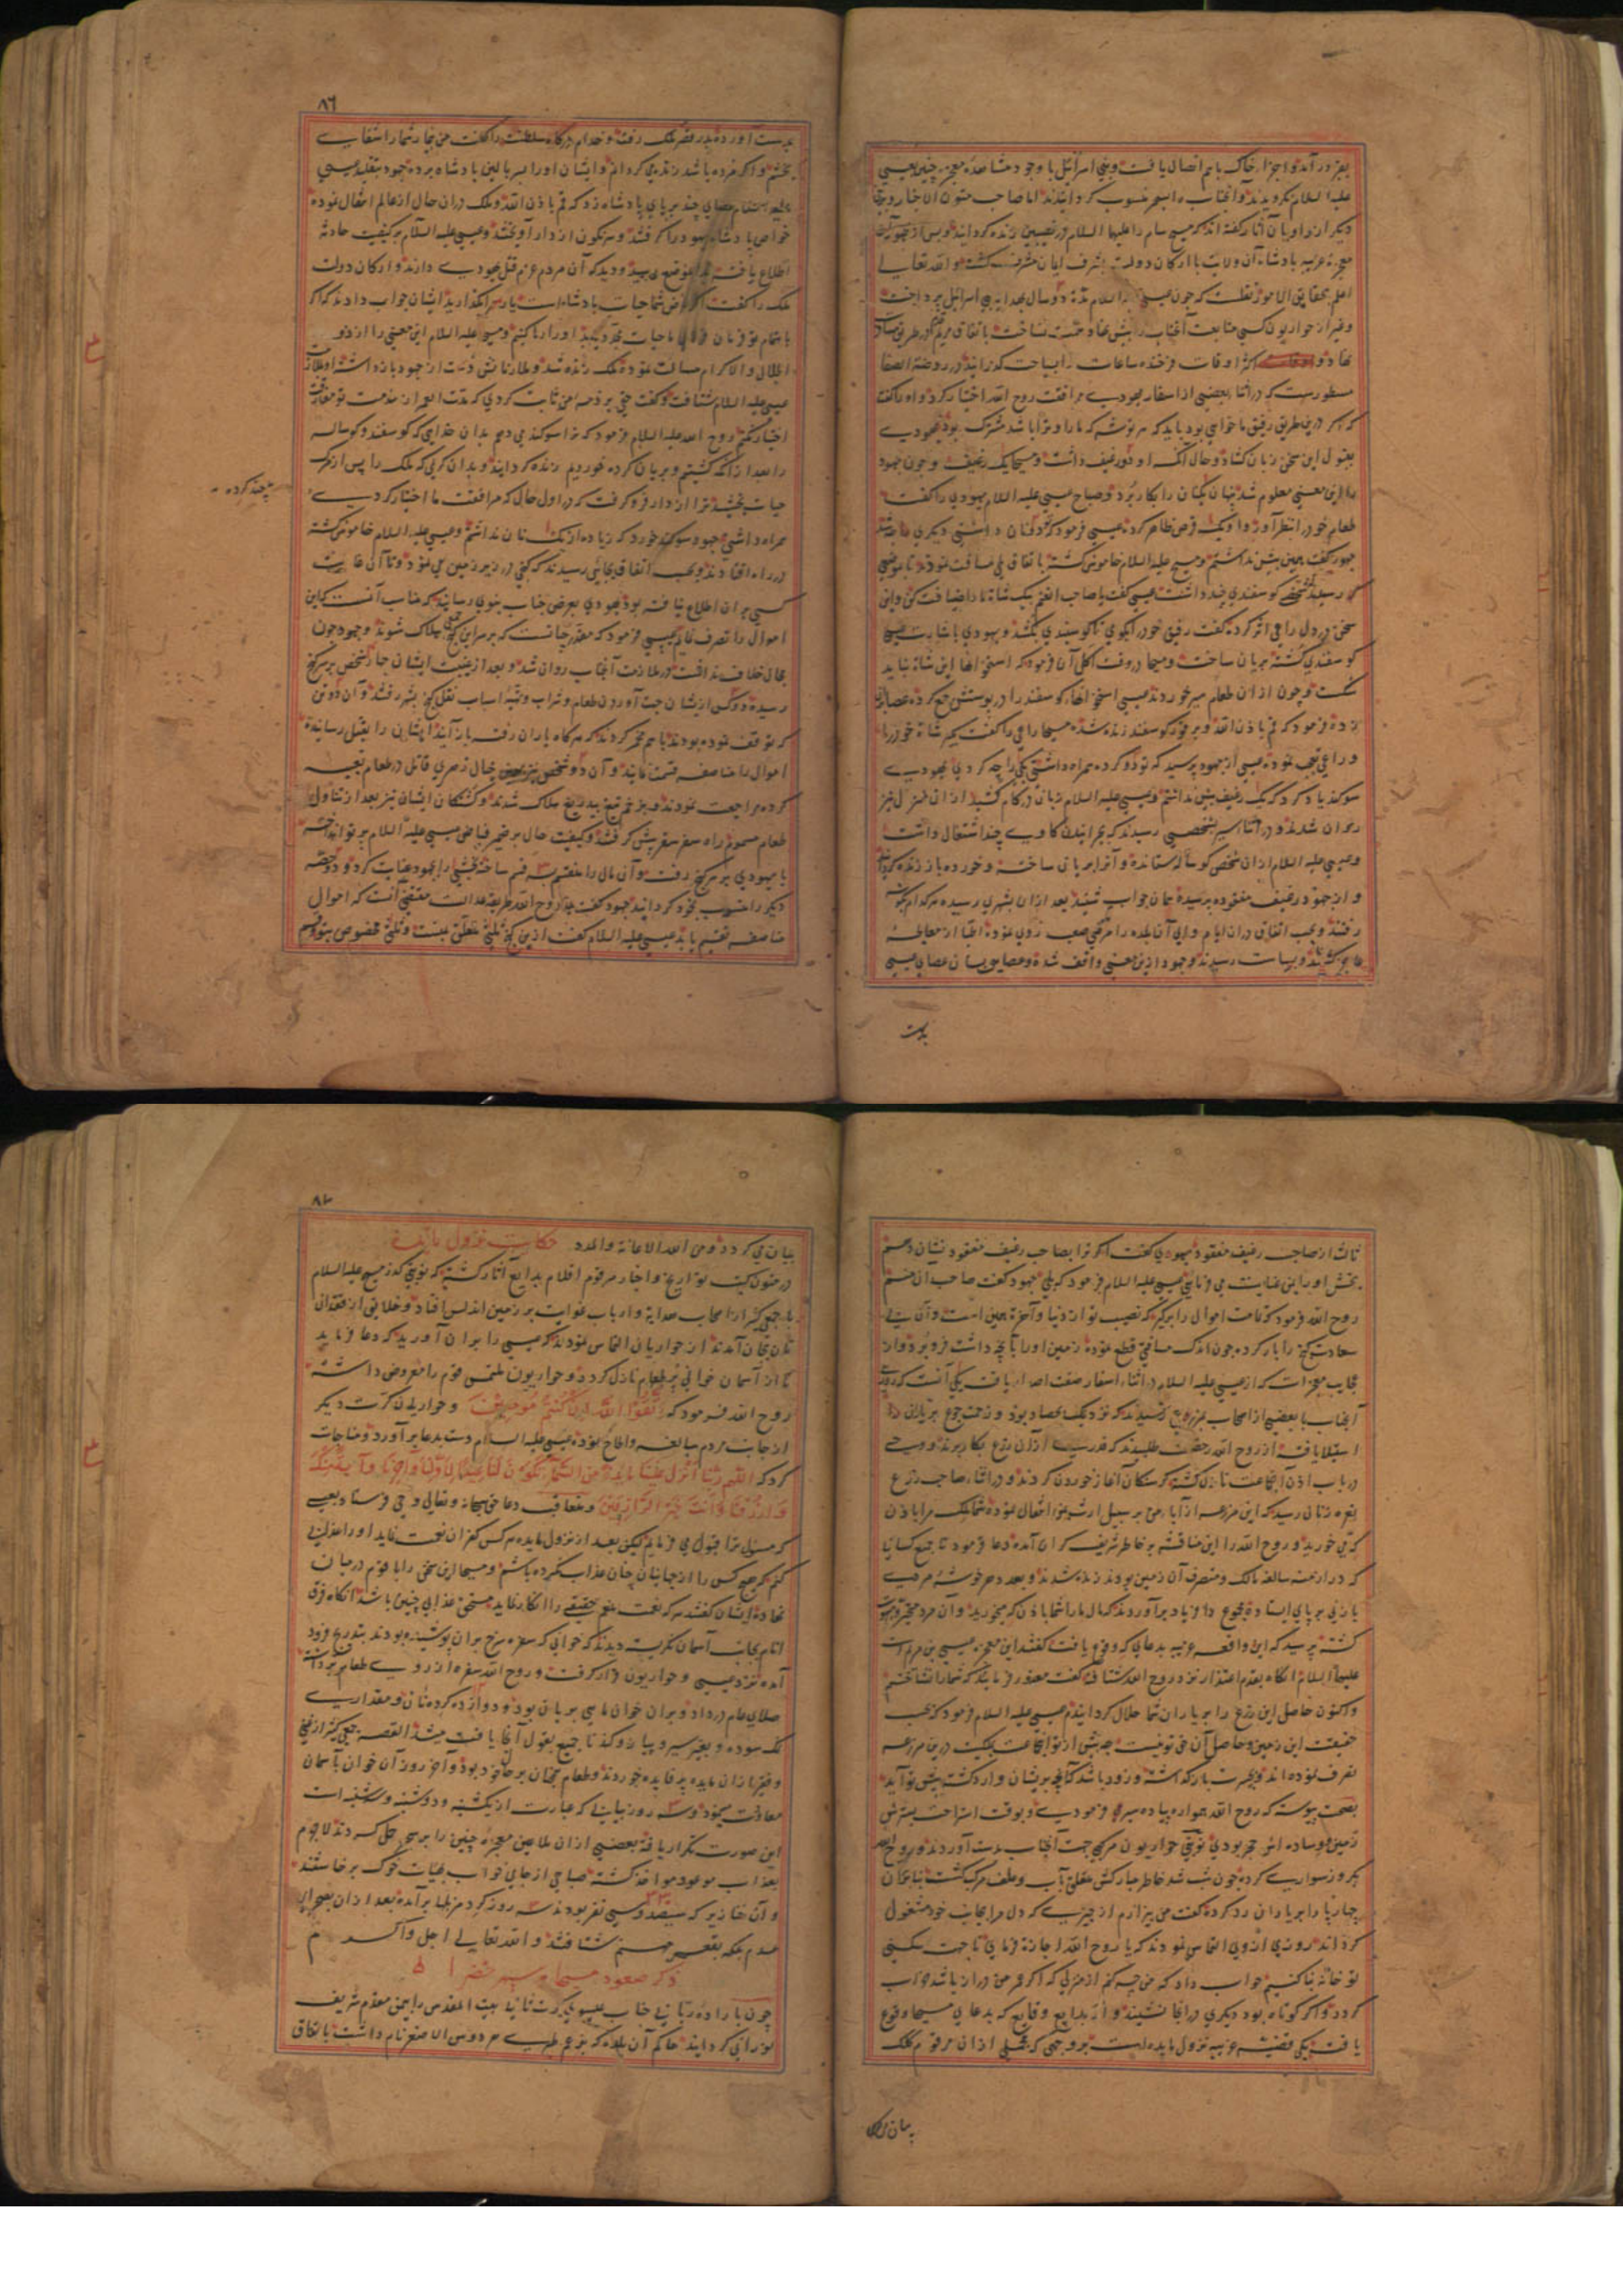 بقبر در آمد و اجزاء خاک باهم اتصال یافت و بنی اسرائیل با وجود مشاهده معجزه چنین بعیسی
علیه السلام نگرویدند و آنجناب را بسحر منسوب گردانیدند اما صاحب متون الاخبار و بعضی
دیگر از راویان آثار گفته اند که مسیح سام را علیهما السلام در نصیبین زنده گردانید و پس از ظهور آن
معجزه غریبه پادشاه آن ولایت با ارکان دولت بشرف ایمان مشرف گشت و الله تعالی
اعلم بحقایق الامور نقلست که چون عیسی علیه السلام مدة دو سال بهدایت بنی اسرائیل پرداخت
و غیر از حواریون کسی متابعت آنجناب را پیش نهاد همت نساخت باتفاق مریم در طریق مسافرت
نهاد و اکثر اوقات فرخنده ساعات را بسیاحت گذرانید در روضة الصفا
مسطورست که در اثناء بعضی از اسفار یهودی مرافقت روح الله اختیار کرد و او را گفت
که اگر درین طریق رفیق ما خواهی بود باید که هر توشه که ما را و ترا باشد مشترک بود یهودی
بقبول این سخن زبان گشاد و حال آنکه او دو رغیف داشت و مسیحا یک رغیف و چون جهود
را این معنی معلوم شد پنهان یک نان را بکار برد و صباح عیسی علیه السلام یهودی را گفت
طعام خود در نظر آور و او یک قرص ظاهر کرده عیسی فرمود که دو نان داشتی دیگری کجا شد
جهود گفت همین بیش نداشتم و مسیح علیه السلام خاموش گشته باتفاق طی مسافت نمودند تا بموضعی
رسیدند که شخصی گوسفندی چند داشت عیسی گفت یا صاحب الغنم بیک شاة ما را ضیافت کن و این
سخن در دل راعی اثر کرده گفت رفیق خود را بگوی تا گوسفندی بکشد و یهودی باشارت عیسی
گوسفندی کشته بریان ساخت و مسیحا در وقت اکل آن فرمود که استخوانهاء این شاة نباید
شکست و چون از ان طعام سیر خوردند عیسی استخوانهاء گوسفند را در پوستش جمع کرده عصا بران
زده فرمود که قم باذن الله و بر فور گوسفند زنده شده مسیحا راعی را گفت بگیر شاة خود را
و راعی تعجب نموده عیسی از جهود پرسید که تو دو گرده همراه داشتی یکی را چه کردی یهودی
سوگند یاد کرد که یک رغیف بیش نداشتم و عیسی علیه السلام زبان در کام کشید از ان منزل نیز
روان شدند و در اثناء سیر بشخصی رسیدند که بچرانیدن گاوی چند اشتغال داشت
و عیسی علیه السلام از ان شخص گوساله ستانده و آنرا بریان ساخته و خورده باز زنده گردانید
و از جهود رغیف مفقوده پرسیده همان جواب شنید بعد ازان بشهری رسیده هر کدام بگوشه
رفتند و بحسب اتفاق در ان ایام والی آن بلده را مرضی صعب روی نموده اطبا از معالجه
عاجز گشتند و بیاست رسیدند و جهود ازین معنی واقف شده و عصایی بسان عصای عیسی
بدست
۸۶
بدست آورده بدر قصر ملک رفت و خدام درگاه سلطنت را گفت من بیمار شما را شفا
بخشم و اگر مرده باشد زنده می گردانم و ایشان او را بسر بالین پادشاه برده جهود بتقلید عیسی
علیه السلام عصای چند بر پای پادشاه زد که قم باذن الله و ملک در ان حال از عالم انتقال نموده
خواص پادشاه یهود را گرفتند و سرنگون از دار آویختند و عیسی علیه السلام بر کیفیت حادثه
اطلاع یافته بدان موضع رسید و دید که آن مردم عزم قتل یهودی دارند و ارکان دولت
ملک را گفت اگر غرض شما حیات پادشاه است یار مرا بگذارید ایشان جواب دادند که اگر
باهتمام تو فرمان فرمای ما حیات مجدد یابد او را رها کنیم و مسیح علیه السلام این معنی را از ذو
الجلال و الاکرام مسالت نموده ملک زنده شد و ملازمانش دست از جهود باز داشتند او بملازمت
عیسی علیه السلام شتافت و گفت حقی بر ذمه من ثابت کردی که مدت العمر از خدمت تو مفارقت
اختیار نکنم روح الله علیه السلام فرمود که ترا سوگند می دهم بدان خدایی که گوسفند و گوساله
را بعد از آنکه کشتیم و بریان کرده خوردیم زنده گردانید و بدان کریمی که ملک را پس از مرگ
حیات بخشید و ترا از دار فرو گرفت که در اول حال که مرافقت ما اختیار کردی
همراه داشتی جهود سوگند خورد که زیاده از یک نان نداشتم و عیسی علیه السلام خاموش گشته
در راه افتادند و بحسب اتفاق بجائی رسیدند که گنجی در زیر زمین می نمود و تا آن غایت
کسی بر ان اطلاع نیافته بود یهودی بعرض جناب نبوی رسانید که مناسب آنست که این
اموال را تصرف نماییم عیسی فرمود که مقدر چنانست که بر سر این گنج جمعی هلاک شوند و جهود چون
مجال خلاف نیافت در ملازمت آنجناب روان شد و بعد از غیبت ایشان چهار شخص بر سر گنج
رسیده دو کس ازیشان جهت آوردن طعام و شراب و تهیه اسباب نقل گنج بشهر رفتند و آن دو تن
که توقف نموده بودند با هم مخمر کردند که هرگاه یاران رفته باز آیند ایشان را بقتل رسانیده
اموال را مناصفه قسمت نمایند و آن دو شخص نیز بهمین خیال زهری قاتل در طعام تعبیه
کرده مراجعت نمودند و بزخم تیغ بیدریغ هلاک شدند و کشندگان ایشان نیز بعد از تناول
طعام مسموم راه سفر سقر پیش گرفتند و کیفیت حال بر ضمیر فیاض عیسی علیه السلام پرتو انداخته
با یهودی بر سر گنج رفت و آن مال را منقسم بسه قسم ساخته بخشی را بجهود عنایت کرد و دو حصه
دیگر را منسوب بخود گردانید جهود گفت یا روح الله طریقه عدالت مقتضی آنست که اموال
مناصفه تقسیم یابد عیسی علیه السلام گفت ازین گنج ثلثی متعلق بمنست و ثلثی مخصوص بتو و قسم
چند کرده
ثالث از صاحب رغیف مفقود یهودی گفت اگر ترا بصاحب رغیف مفقود نشان دهم
بخش او را بمن عنایت می فرمایی عیسی علیه السلام فرمود که بلی جهود گفت صاحب آن منم
روح الله فرمود که تمامت اموال را برگیر که نصیب تو از دنیا و آخرة همین است و آن بی
سعادت گنج را بار کرده چون اندک مسافتی قطع نموده زمین او را با آنچه داشت فرو برد و از
عجایب معجزات که از عیسی علیه السلام در اثناء اسفار صفت اصدار یافت یکی آنست که روزی
آنجناب با بعضی از اصحاب بمزرعه رسیدند که نزدیک بحصاد بود و زحمت جوع بر یاران
استیلا یافته از روح الله رخصت طلبیدند که قدری از ان زرع بکار برند و وحی
در باب اذن آنجماعت نازل گشته گرسنگان آغاز خوردن کردند و در اثناء صاحب زرع
نعره زنان رسید که این مزرعه از آباء من بر سبیل ارث بمن انتقال نموده شما ملک مرا باذن
که می خورید و روح الله را این مناقشه بر خاطر شریف گران آمده دعا فرمود تا جمیع کسانیکه
که در ازمنه سالفه مالک و متصرف آن زمین بودند زنده شدند و بعدد هر خوشه مردی
یا زنی بر پای ایستاده مجموع فریاد بر آوردند که مال ما را شما باذن که می خورید و آن مرد متحیر و مبهوت
گشته پرسید که این واقعه غریبه بدعای که وقوع یافت گفتند این معجزه عیسی بن مریم است
علیهما السلام انگاه بقدم اعتذار نزد روح الله شتافته گفت معذور فرمایید که شما را نشناختم
و اکنون حاصل این زرع را بر یاران شما حلال گردانیدم عیسی علیه السلام فرمود که بحسب
حقیقت این زمین و حاصل آن حق تو نیست چه پیش از تو اینجماعت بملکیت درین مزرعه
تصرف نموده اند و بحسرت باز گذاشته و زود باشد که آنچه بریشان وارد گشته پیش تو آید
بصحت پیوسته که روح الله همواره پیاده سیر می فرمودی و بوقت استراحت بسترش
زمین و وساده اش حجر بودی نوبتی حواریون مرکبی جهت آنجناب بدست آوردند و روح الله
یکروز سواری کرده چون شب شد خاطر مبارکش متعلق بآب و علف مرکب گشت بنابران
چهارپا را بر یاران رد کرده گفت من بیزارم از چیزی که دل مرا بجانب خود مشغول
گرداند روزی از وی التماس نمودند که یا روح الله اجازة فرمای تا جهت سکنی
تو خانه بنا کنیم جواب داد که من چه کنم از منزلی که اگر عمر من دراز باشد خراب
گردد و اگر کوتاه بود دیگری در انجا نشیند و از بدایع وقایع که بدعای مسیحا وقوع
یافت یکی قضیه غریبه نزول مایده است بر وجهی که مجملی از ان مرقوم کلک
بیان
۸۷
بیان می گردد و من الله الاعانة و المدد حکایت نزول مایده
در متون کتب تواریخ و اخبار مرقوم اقلام بدایع آثار گشته که نوبتی گذر مسیح علیه السلام
با جمعی کثیر از اصحاب هدایة و ارباب غوایت بر زمین اندلس افتاد و خلایق از فقدان
نان بجان آمدند از حواریان التماس نمودند که عیسی را بران آورید که دعا فرماید
تا از آسمان خوانی پر طعام نازل گردد و حواریون ملتمس قوم را معروض داشته
روح الله فرمود که اتَّقُوا اللَّهَ اِنْ كُنْتُمْ مُؤمِنِينَ و حواریان کرت دیگر
از جانب مردم مبالغه و الحاح نموده عیسی علیه السلام دست بدعا بر آورد و مناجات
کرد که اَللّهُمَّ رَبَّنَا اَنْزِلْ عَلَيْنَا مَائِدَةً مِنَ السَّمَاءِ تَكُونُ لَنَا عِيدًا لِاَوَّلِنَا وَآخِرِنَا وَآيَةً مِنْكَ
وَارْزُقْنَا وَاَنْتَ خَيْرُ الرَّازِقِينَ و متعاقب دعا حق سبحانه و تعالی وحی فرستاد بعیسی
که مسئول ترا قبول می فرمایم لیکن بعد از نزول مایده هر کس کفران نعمت نماید او را عذابی
کنم که هیچ کس را از جهانیان چنان عذاب نکرده باشم و مسیحا این سخن را با قوم در میان
نهاده ایشان گفتند هر که نعمت منعم حقیقی را انکار نماید مستحق عذابی چنین باشد انگاه فرق
انام بجانب آسمان نگریسته دیدند که خوانی که سفره سرخ بران پوشیده بودند بتدریج فرود
آمده نزد عیسی و حواریون قرار گرفت و روح الله سفره از روی طعام برداشت
صلای عام در داد و بران خوان ماهی بریان بود و دوازده گرده نان و مقداری
نمک سوده و بغیر سیر و پیاز و گندنا جمیع بقول آنجا یافت میشد القصه جمعی کثیر از غنی
و فقیر از ان مایده پر فایده خوردند و طعام همچنان بر حال خود بود و آخر روز آن خوان بآسمان
معاودت نمود و سه روز پیاپی که عبارت از یکشنبه و دوشنبه و سه شنبه است
این صورت تکرار یافته بعضی از ان ملاعین معجزه چنین را بر سحر حمل کردند لاجرم
بعذاب موعود مواخذ گشته صباحی از جای خواب بهیأت خوک برخاستند
و آن خنازیر که سیصد و سی نفر بودند سه روز گرد مزبلها بر آمده بعد از ان بصحرای
عدم بلکه بقعر جهنم شتافتند و الله تعالی اجل و اکبر
ذکر صعود مسیحا بر سپهر خضرا
چون باراده ربانی جناب عیسوی کرت ثانی بیت المقدس را بیمن مقدم شریف
نورانی گردانید حاکم آن بلده که بزعم طبری هردوس الاصغر نام داشت باتفاق